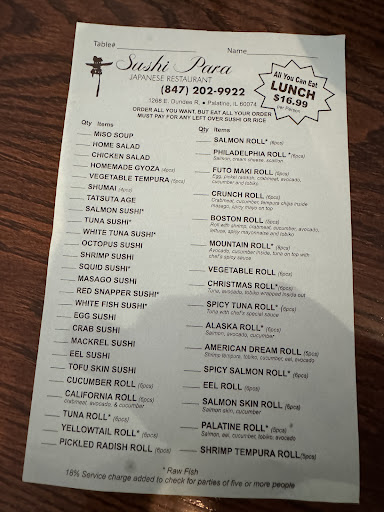 Table# Name
Sushi Para
JAPANESE RESTAURANT
(847) 202-9922
1268 E. Dundee R. • Palatine, IL 60074
ORDER ALL YOU WANT, BUT EAT ALL YOUR ORDER
MUST PAY FOR ANY LEFT OVER SUSHI OR RICE
All You Can Eat
LUNCH
$16.99
Per Person
Qty Items
MISO SOUP
HOME SALAD
CHICKEN SALAD
HOMEMADE GYOZA (4pcs)
VEGETABLE TEMPURA (5pcs)
SHUMAI (4pcs)
TATSUTA AGE
SALMON SUSHI*
TUNA SUSHI*
WHITE TUNA SUSHI*
OCTOPUS SUSHI
SHRIMP SUSHI
SQUID SUSHI*
MASAGO SUSHI
RED SNAPPER SUSHI*
WHITE FISH SUSHI*
EGG SUSHI
CRAB SUSHI
MACKREL SUSHI
EEL SUSHI
TOFU SKIN SUSHI
CUCUMBER ROLL (6pcs)
CALIFORNIA ROLL (6pcs)
crabmeat, avocado, & cucumber
TUNA ROLL* (6pcs)
YELLOWTAIL ROLL* (6pcs)
PICKLED RADISH ROLL (6pcs)
Qty Items
SALMON ROLL* (6pcs)
PHILADELPHIA ROLL *(6pcs)
Salmon, cream cheese, scallion
FUTO MAKI ROLL (5pcs)
Egg, pickel radish, crabmeat, avocado,
cucumber and tobiko
CRUNCH ROLL (6pcs)
Crabmeat, cucumber, tempura chips inside
masago, spicy mayo on top
BOSTON ROLL (5pcs)
Roll with shrimp, crabmeat, cucumber, avocado,
lettuce, spicy mayonnaise and tobiko
MOUNTAIN ROLL* (8pcs)
Avocado, cucumber inside, tuna on top with
chef's spicy sauce
VEGETABLE ROLL (6pcs)
CHRISTMAS ROLL*(6pcs)
Tuna, avocado, tobiko wrapped inside out
SPICY TUNA ROLL* (6pcs)
Tuna with chef's special sauce
ALASKA ROLL* (6pcs)
Salmon, avocado, cucumber
AMERICAN DREAM ROLL (6pcs)
Shrimp tempura, tobiko, cucumber, eel, avocado
SPICY SALMON ROLL* (6pcs)
EEL ROLL (6pcs)
SALMON SKIN ROLL (6pcs)
Salmon skin, cucumber
PALATINE ROLL* (5pcs)
Salmon, eel, cucumber, tobiko, avocado
SHRIMP TEMPURA ROLL(5pcs)
* Raw Fish
18% Service charge added to check for parties of five or more people